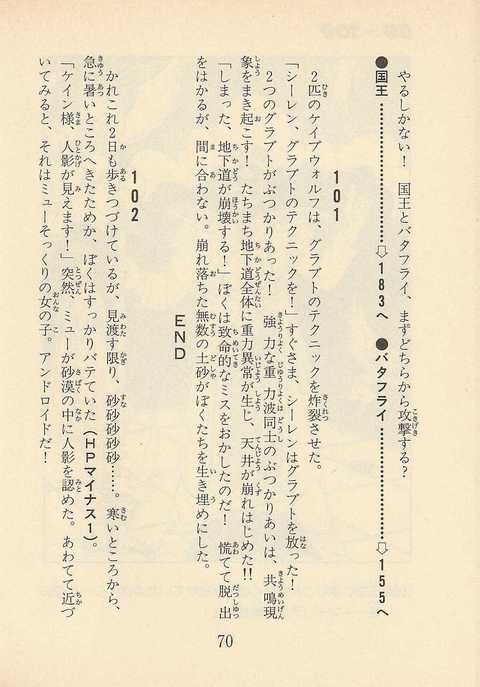 やるしかない！　国王とバタフライ、まずどちらから攻撃する？
●国王…………………⇨183へ　●バタフライ…………………⇨155へ
101
2匹のケイブウォルフは、グラブトのテクニックを炸裂させた。
「シーレン、グラブトのテクニックを！」すぐさま、シーレンはグラブトを放った！
2つのグラブトがぶつかりあった！　強力な重力波同士のぶつかりあいは、共鳴現
象をまき起こす！　たちまち地下道全体に重力異常が生じ、天井が崩れはじめた!!
「しまった、地下道が崩壊する！」ぼくは致命的なミスをおかしたのだ！　慌てて脱出
をはかるが、間に合わない。崩れ落ちた無数の土砂がぼくたちを生き埋めにした。
END
102
かれこれ2日も歩きつづけているが、見渡す限り、砂砂砂砂砂……。寒いところから、
急に暑いところへきたためか、ぼくはすっかりバテていた（HPマイナス1）。
「ケイン様、人影が見えます！」突然、ミューが砂漠の中に人影を認めた。あわてて近づ
いてみると、それはミューそっくりの女の子。アンドロイドだ！
70